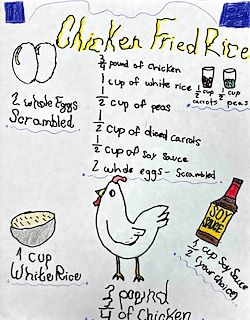 Chicken Fried Rice
3/4 pound of chicken
1 cup of white rice
1/2 cup of peas
1/2 cup of diced carrots
1/2 cup of Soy Sauce
2 whole eggs - Scrambled
2 whole Eggs
Scrambled
1/2 cup carrots
1/2 cup peas
1 cup
White Rice
SOY
SAUCE
1/2 cup Soy Sauce
(your choice)
3/4 pound
of Chicken